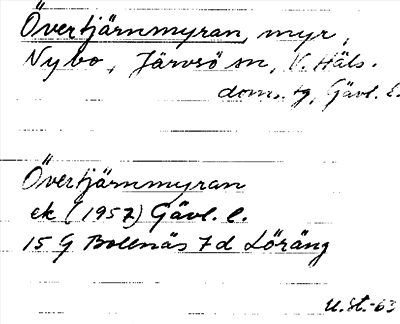 Övertjärnmyran, myr,
Nybo, Järvsö sn, V. Häls.
doms. tg, Gävl. l.
Övertjärnmyran
ek (1957) Gävl. l.
15 G Bollnäs 7 d Löräng
U.St.-63